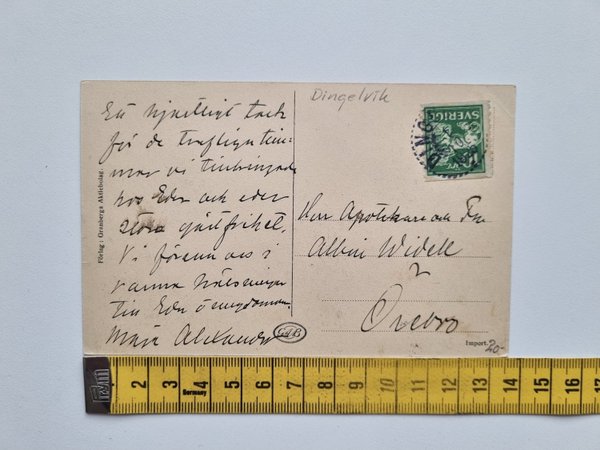 Dingelvik
SVERIGE
Ett hjärtligt tack
för de trefliga tim-
mar vi tillbringade
hos Eder och eder
stora gästfrihet.
Vi förena oss i
varma hälsningar
till Eder
Maja Alexander
Herr Apotekare och Fru
Albin Widell
Örebro
Förlag: Granbergs Aktiebolag.
GAB
Import.
20-
1 2 3 4 5 6 7 8 9 10 11 12 13 14 15 16 17
Germany